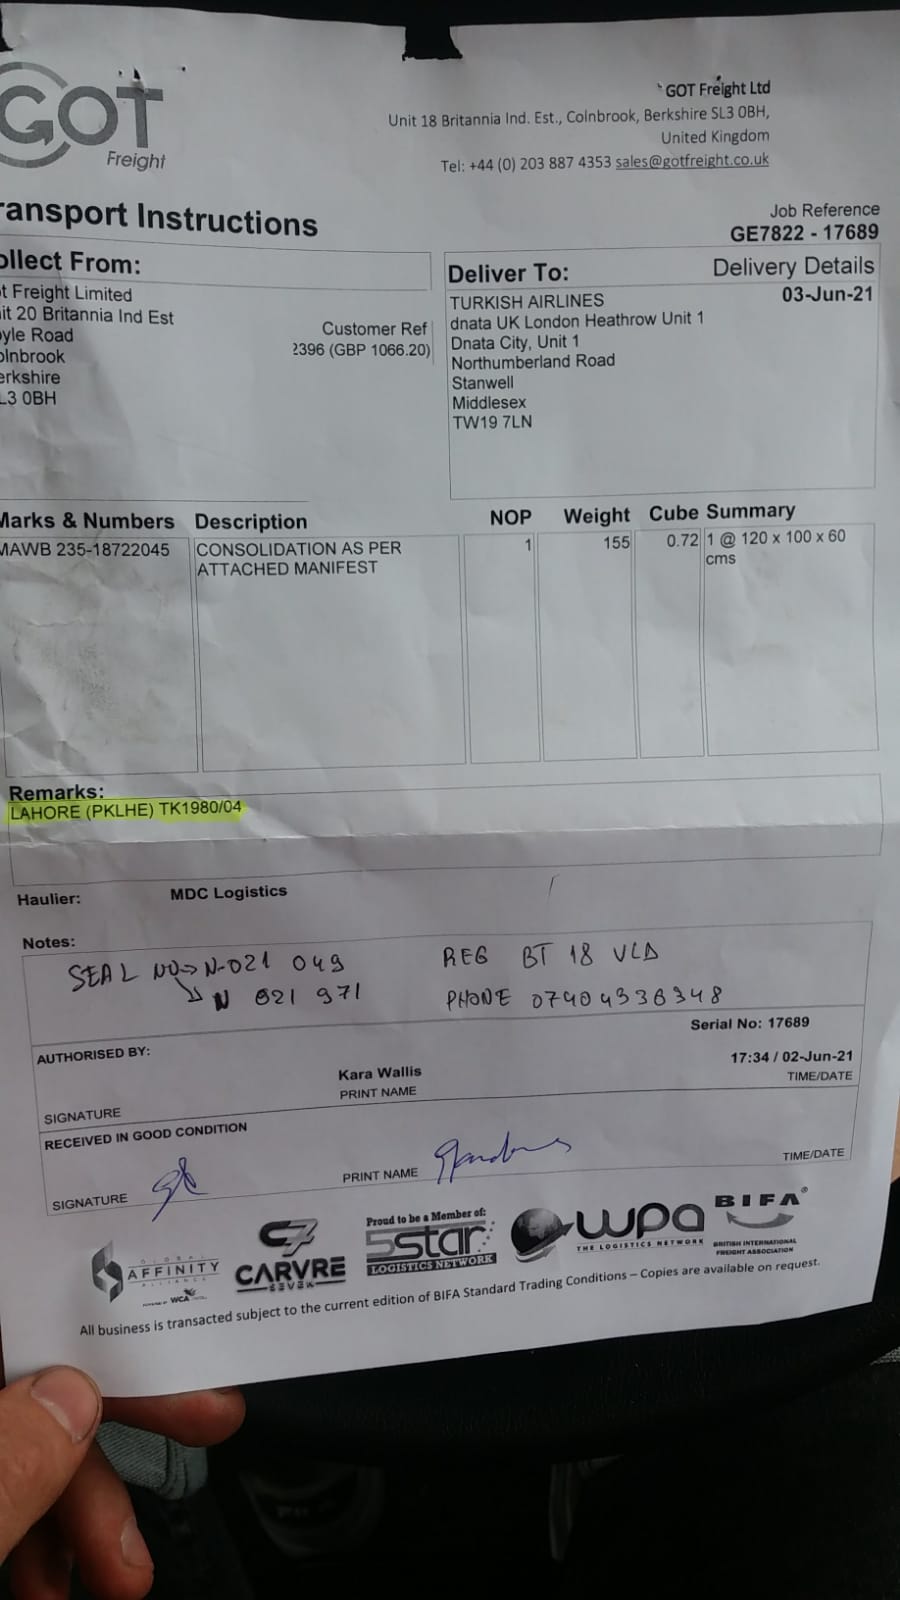 GOT
Freight
GOT Freight Ltd
Unit 18 Britannia Ind. Est., Colnbrook, Berkshire SL3 0BH,
United Kingdom
Tel: +44 (0) 203 887 4353 sales@gotfreight.co.uk
ransport Instructions
Job Reference
GE7822 - 17689
ollect From:
t Freight Limited
it 20 Britannia Ind Est
oyle Road
olnbrook
erkshire
L3 0BH
Customer Ref
2396 (GBP 1066.20)
Deliver To:
Delivery Details
03-Jun-21
TURKISH AIRLINES
dnata UK London Heathrow Unit 1
Dnata City, Unit 1
Northumberland Road
Stanwell
Middlesex
TW19 7LN
Marks & Numbers Description NOP Weight Cube Summary
MAWB 235-18722045 CONSOLIDATION AS PER 1 155 0.72 1 @ 120 x 100 x 60
ATTACHED MANIFEST cms
Remarks:
LAHORE (PKLHE) TK1980/04
Haulier: MDC Logistics
Notes:
SEAL NO→ N-021 049 REG BT 18 VLD
N 021 971 PHONE 07404336348
Serial No: 17689
AUTHORISED BY:
Kara Wallis 17:34 / 02-Jun-21
SIGNATURE PRINT NAME TIME/DATE
RECEIVED IN GOOD CONDITION
SIGNATURE PRINT NAME TIME/DATE
GLOBAL
AFFINITY
ALLIANCE
POWERED BY WCA
C7
CARVRE
SEVEN
Proud to be a Member of:
5star
LOGISTICS NETWORK
wpa
THE LOGISTICS NETWORK
BIFA®
BRITISH INTERNATIONAL
FREIGHT ASSOCIATION
All business is transacted subject to the current edition of BIFA Standard Trading Conditions – Copies are available on request.